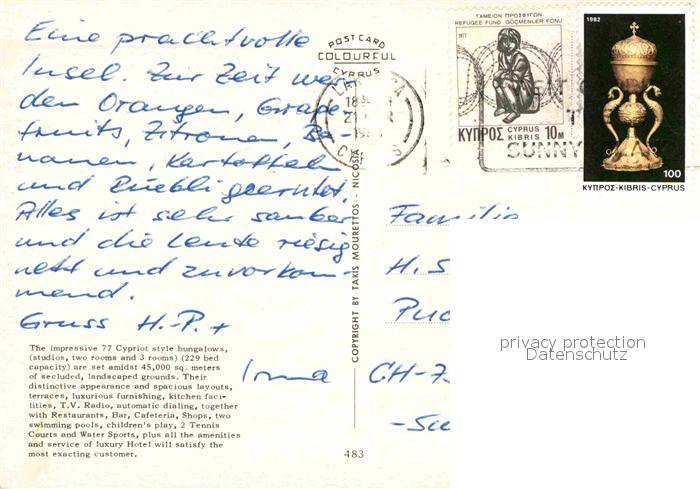 Eine prachtvolle
Insel. Zur Zeit wer-
den Orangen, Grade-
fruits, Zitronen, Ba-
nanen, Kartoffeln
und Rüebli geerntet.
Alles ist sehr sauber
und die Leute riesig
nett und zuvorkom-
mend.
Gruss H.-P. +
Irma
The impressive 77 Cypriot style bungalows,
(studios, two rooms and 3 rooms) (229 bed
capacity) are set amidst 45,000 sq. meters
of secluded, landscaped grounds. Their
distinctive appearance and spacious layouts,
terraces, luxurious furnishing, kitchen faci-
lities, T.V. Radio, automatic dialing, together
with Restaurants, Bar, Cafeteria, Shops, two
swimming pools, children's play, 2 Tennis
Courts and Water Sports, plus all the amenities
and service of luxury Hotel will satisfy the
most exacting customer.
POST CARD
COLOURFUL
CYPRUS
COPYRIGHT BY TAKIS MOURETTOS - NICOSIA
483
ΤΑΜΕΙΟΝ ΠΡΟΣΦΥΓΩΝ
REFUGEE FUND GÖÇMENLER FONU
1977
ΚΥΠΡΟΣ CYPRUS KIBRIS 10M
SUNNY
1982
100
ΚΥΠΡΟΣ-KIBRIS-CYPRUS
Familie
H. S
CH-7
privacy protection
Datenschutz